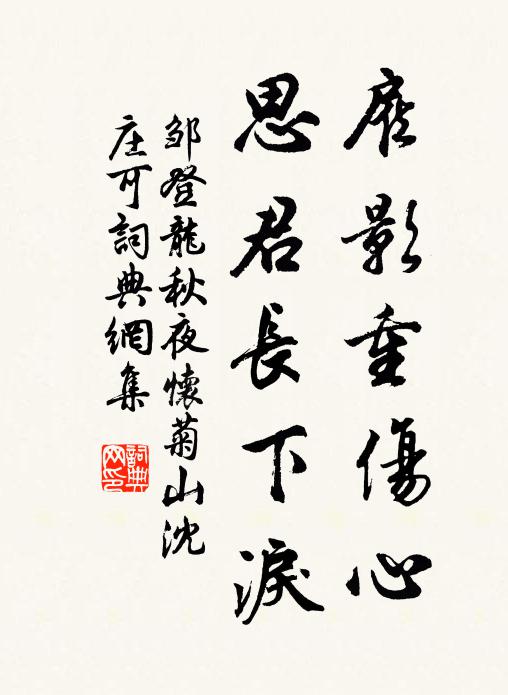 顧影重傷心
思君長下淚
邹登龍秋夜懷菊山沈
庄可詞典網集
詞典网印